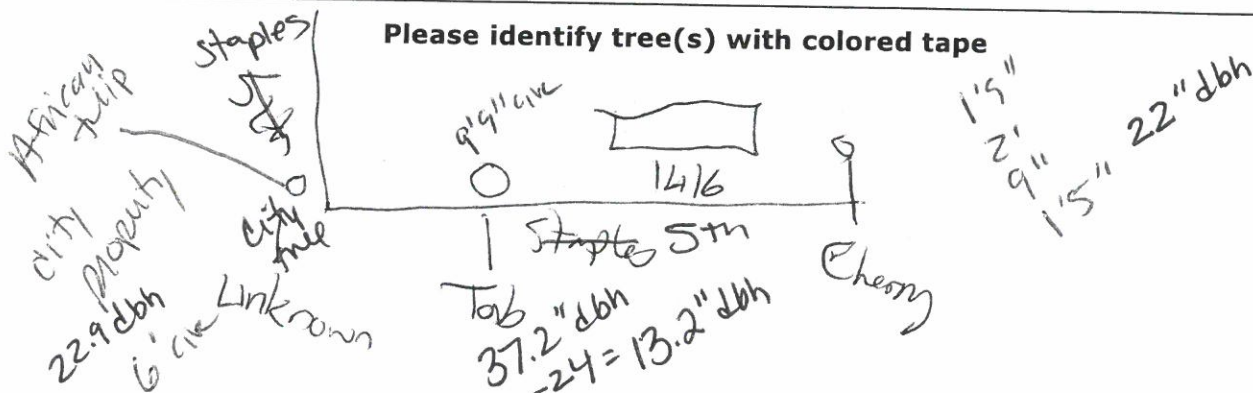 Please identify tree(s) with colored tape
Staples
African
tulip
City
property
22.9"dbh
6' circ
City
tree
Unknown
9'9" circ
1416
Staples 5th
37.2" dbh
-24= 13.2" dbh
Cherry
1'9"
2'
9"
1'5"
22" dbh